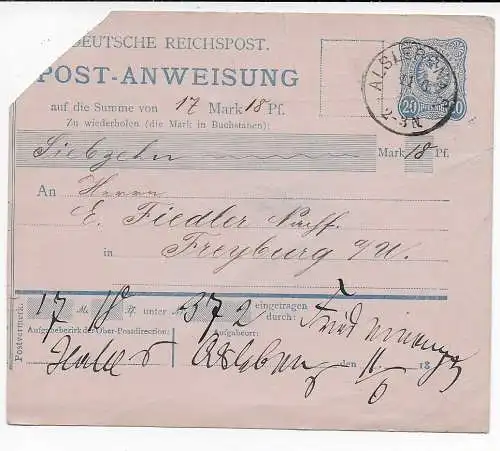 DEUTSCHE REICHSPOST.
POST-ANWEISUNG
auf die Summe von 17 Mark 18 Pf.
Zu wiederholen (die Mark in Buchstaben):
Siebzehn Mark 18 Pf.
An Herrn
E. Fiedler Nachf.
in Freyburg a/U.
ALSLEBEN
2-3N
20 PFENNIG 20
Postvermerk.
17 M. 18 Pf. unter No. 372 eingetragen durch:
Aufgabebezirk der Ober-Postdirection: Aufgabeort:
Halle Alsleben den 11/6 18